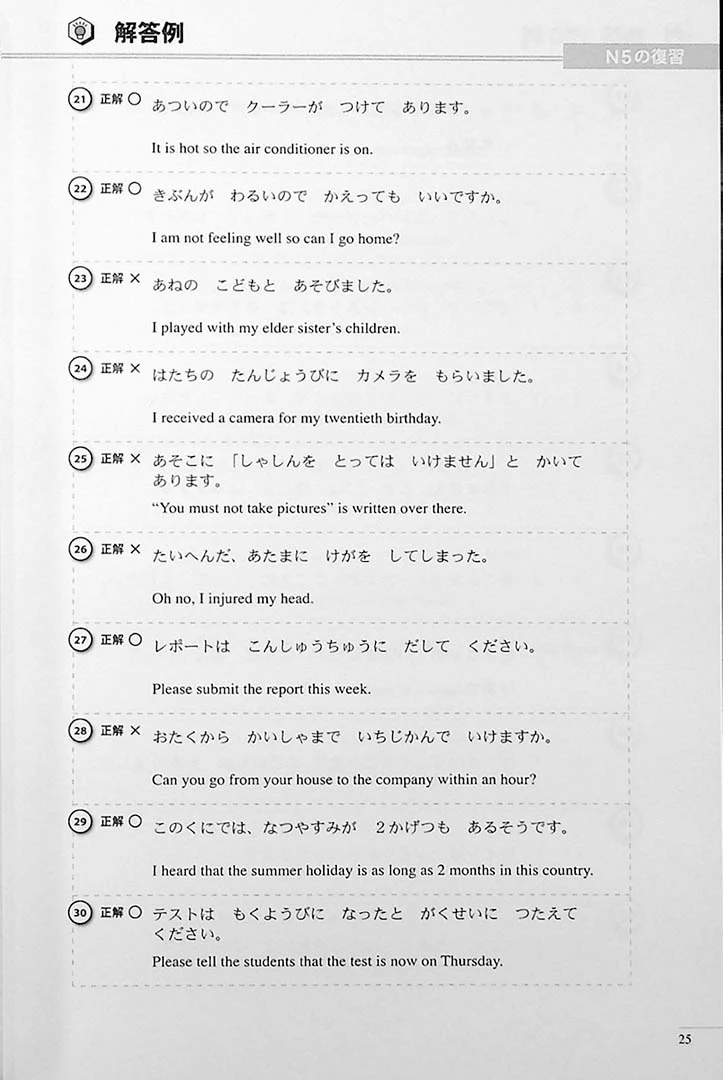 解答例
N5の復習
21 正解 ○ あついので　クーラーが　つけて　あります。
It is hot so the air conditioner is on.
22 正解 ○ きぶんが　わるいので　かえっても　いいですか。
I am not feeling well so can I go home?
23 正解 × あねの　こどもと　あそびました。
I played with my elder sister's children.
24 正解 × はたちの　たんじょうびに　カメラを　もらいました。
I received a camera for my twentieth birthday.
25 正解 × あそこに　「しゃしんを　とっては　いけません」と　かいて
あります。
“You must not take pictures” is written over there.
26 正解 × たいへんだ、あたまに　けがを　してしまった。
Oh no, I injured my head.
27 正解 ○ レポートは　こんしゅうちゅうに　だして　ください。
Please submit the report this week.
28 正解 × おたくから　かいしゃまで　いちじかんで　いけますか。
Can you go from your house to the company within an hour?
29 正解 ○ このくにでは、なつやすみが　２かげつも　あるそうです。
I heard that the summer holiday is as long as 2 months in this country.
30 正解 ○ テストは　もくようびに　なったと　がくせいに　つたえて
ください。
Please tell the students that the test is now on Thursday.
25